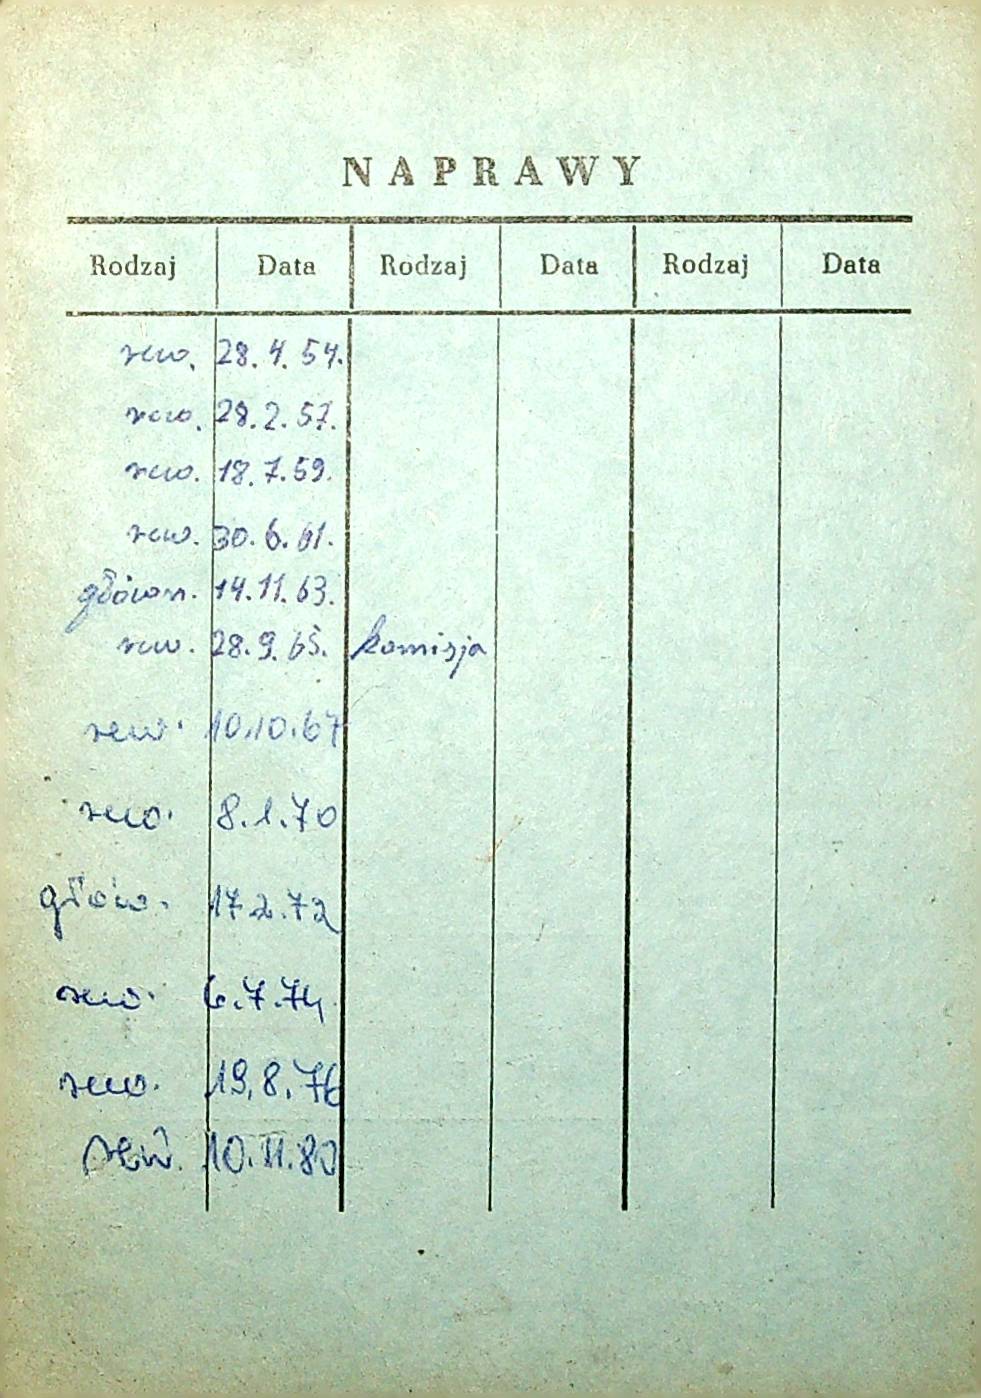 NAPRAWY
Rodzaj Data Rodzaj Data Rodzaj Data
rew. 28.4.54.
rew. 28.2.57.
rew. 18.7.59.
rew. 30.6.61.
główn. 14.11.63.
rew. 28.9.65. komisja
rew. 10.10.67
rew. 8.1.70
głów. 17.2.72
rew. 6.7.74.
rew. 19.8.76
rew.